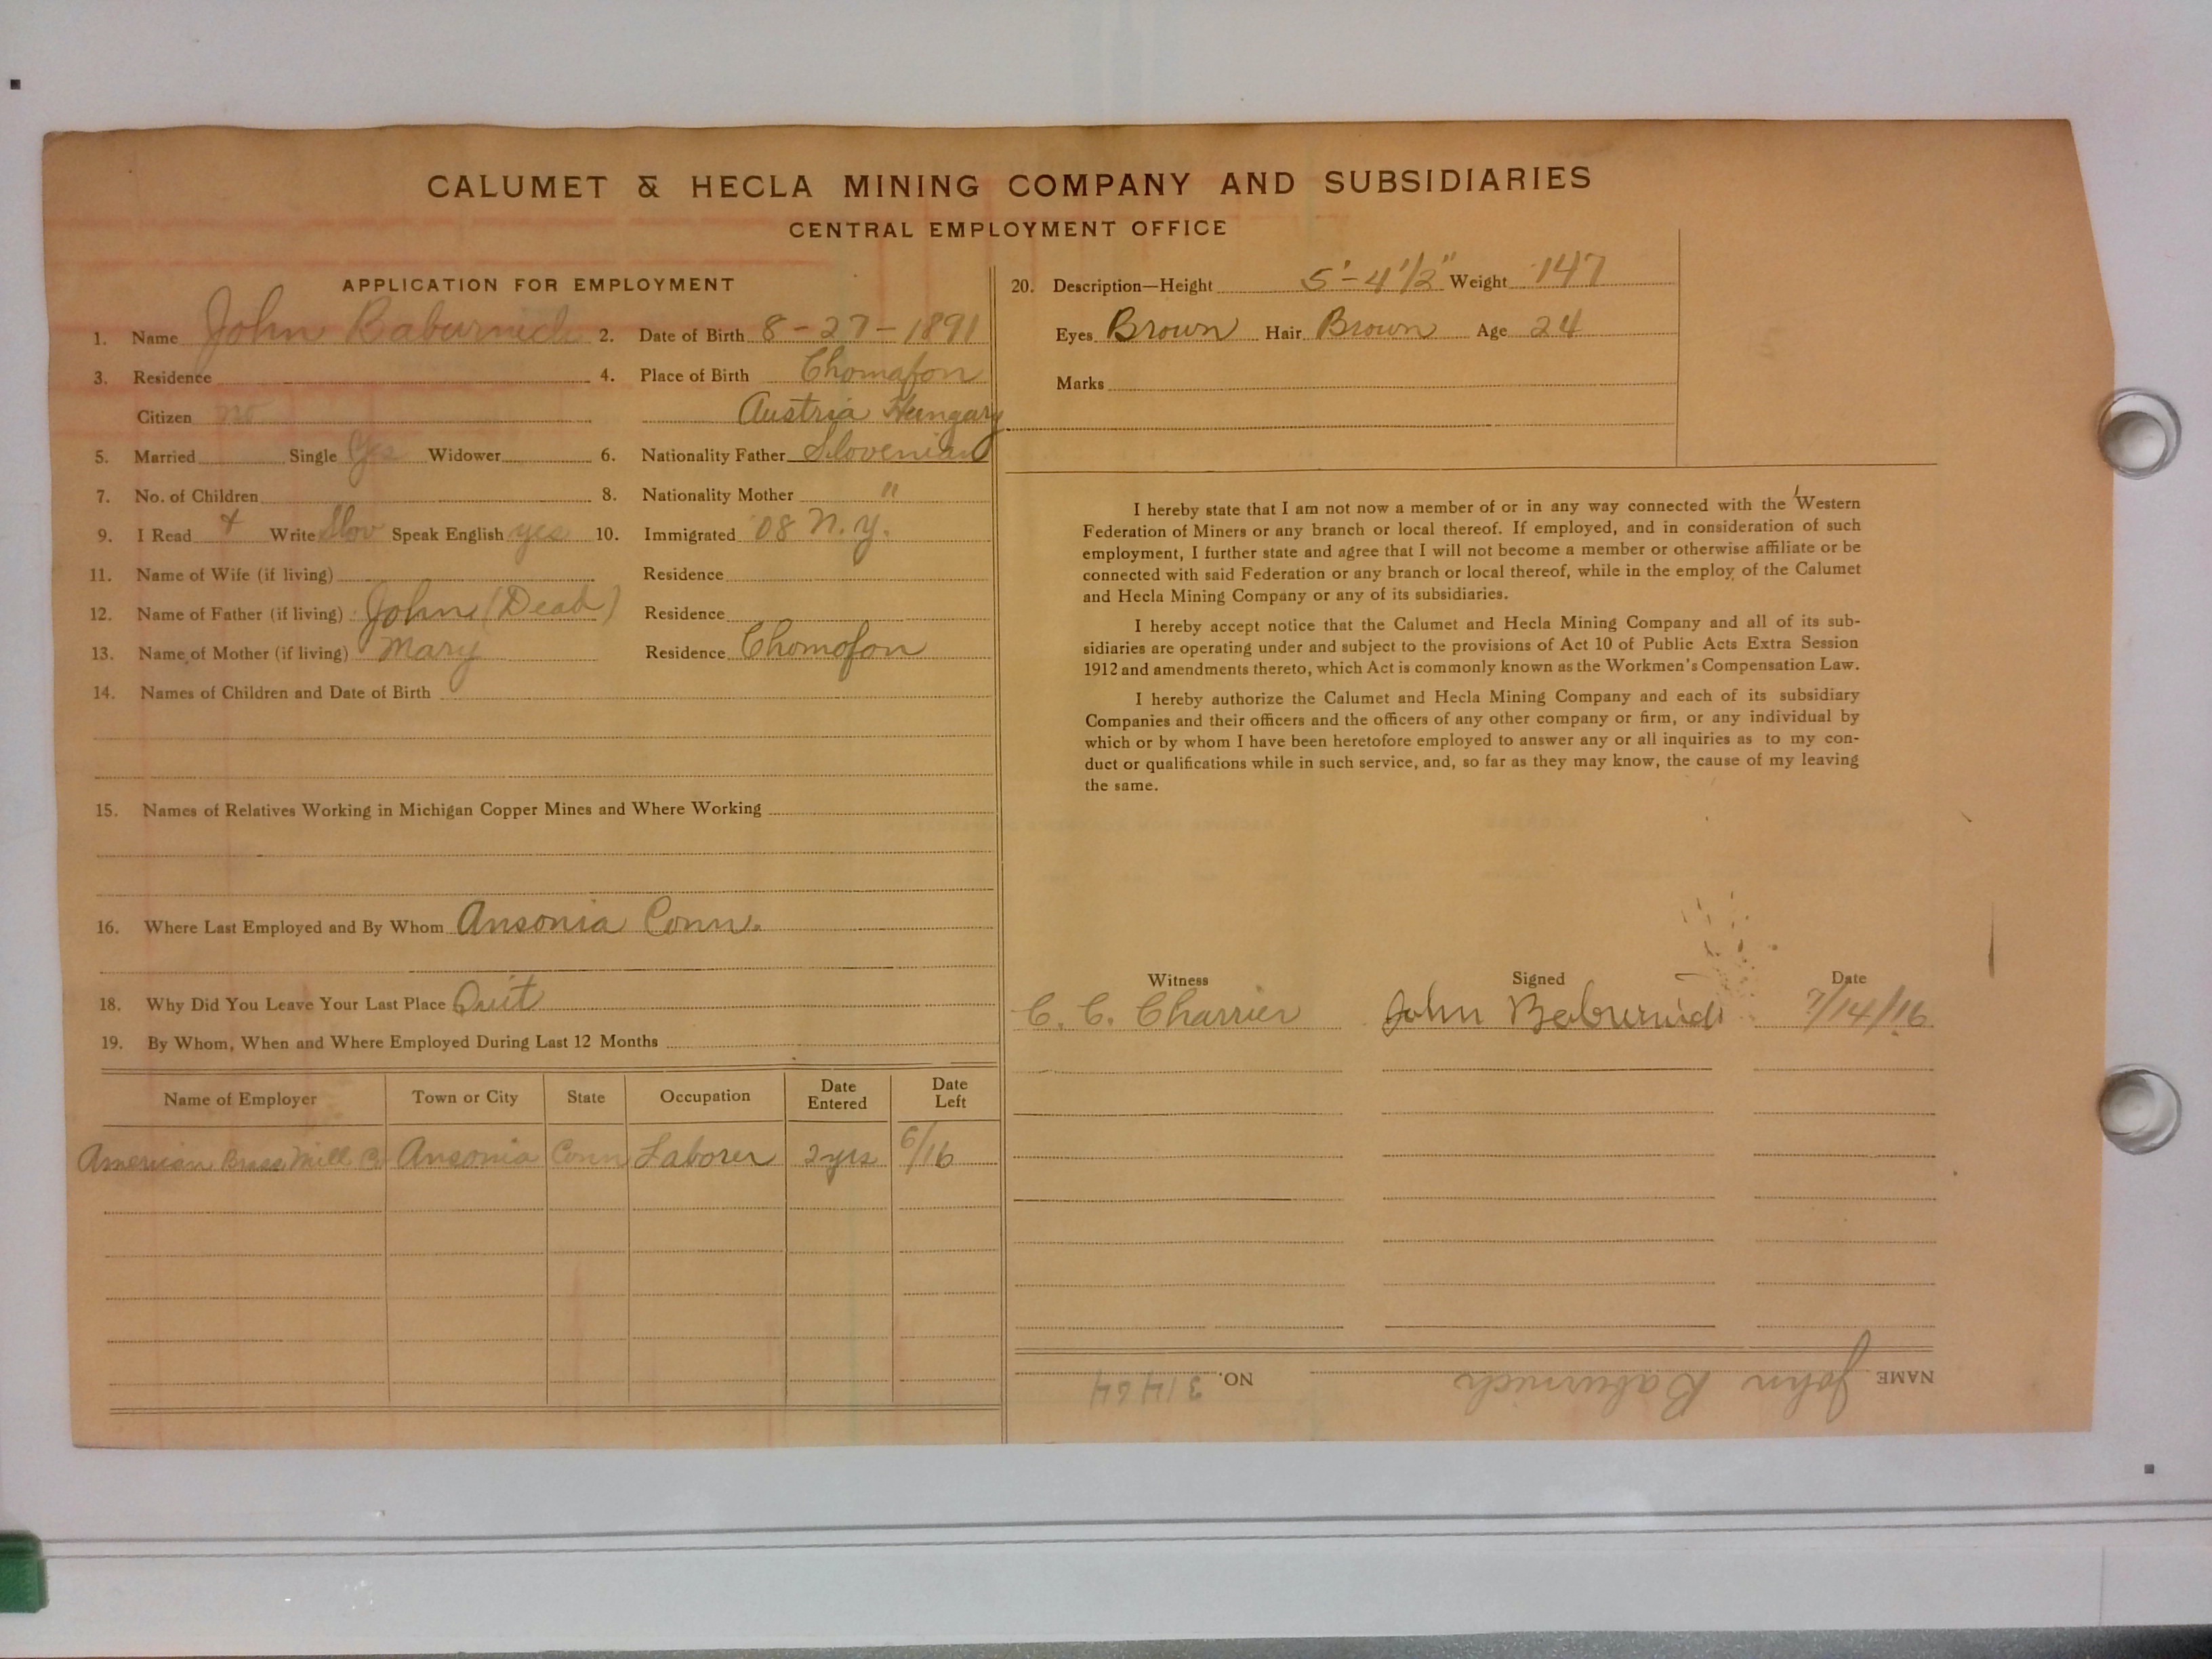 CALUMET & HECLA MINING COMPANY AND SUBSIDIARIES
CENTRAL EMPLOYMENT OFFICE
APPLICATION FOR EMPLOYMENT
1. Name John Baburnich 2. Date of Birth 8-27-1891
3. Residence 4. Place of Birth Chomafon
Citizen no Austria Hungary
5. Married Single Yes Widower 6. Nationality Father Slovenian
7. No. of Children 8. Nationality Mother "
9. I Read & Write Slov Speak English yes 10. Immigrated '08 N.Y.
11. Name of Wife (if living) Residence
12. Name of Father (if living) John (Dead) Residence
13. Name of Mother (if living) Mary Residence Chomofon
14. Names of Children and Date of Birth
15. Names of Relatives Working in Michigan Copper Mines and Where Working
16. Where Last Employed and By Whom Ansonia Conn.
18. Why Did You Leave Your Last Place Quit
19. By Whom, When and Where Employed During Last 12 Months
Name of Employer Town or City State Occupation Date Entered Date Left
American Brass Mill Co Ansonia Conn Laborer 2yrs 6/16
20. Description—Height 5'-4 1/2" Weight 147
Eyes Brown Hair Brown Age 24
Marks
I hereby state that I am not now a member of or in any way connected with the Western
Federation of Miners or any branch or local thereof. If employed, and in consideration of such
employment, I further state and agree that I will not become a member or otherwise affiliate or be
connected with said Federation or any branch or local thereof, while in the employ of the Calumet
and Hecla Mining Company or any of its subsidiaries.
I hereby accept notice that the Calumet and Hecla Mining Company and all of its sub-
sidiaries are operating under and subject to the provisions of Act 10 of Public Acts Extra Session
1912 and amendments thereto, which Act is commonly known as the Workmen's Compensation Law.
I hereby authorize the Calumet and Hecla Mining Company and each of its subsidiary
Companies and their officers and the officers of any other company or firm, or any individual by
which or by whom I have been heretofore employed to answer any or all inquiries as to my con-
duct or qualifications while in such service, and, so far as they may know, the cause of my leaving
the same.
Witness Signed Date
C. C. Charrier John Baburnich 7/14/16
NAME John Baburnich NO. 31464